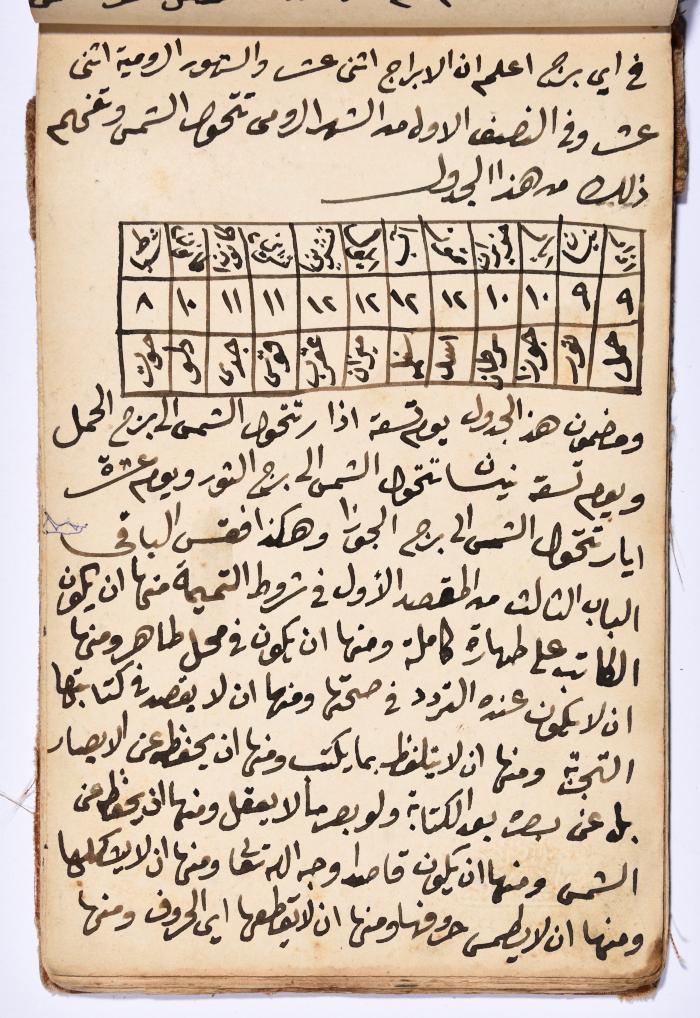 في اي برج اعلم ان الابراج اثنى عشر والشهور الرومية اثنى
عشر وفي النصف الاول من الشهر الرومي تتحول الشمس وتفهم
ذلك من هذا الجدول
اذار نيسان ايار حزيران تموز اب ايلول تشرين تشرين كانون كانون شباط
٩ ٩ ١٠ ١٠ ١٢ ١٢ ١٢ ١٢ ١١ ١١ ١٠ ٨
حمل ثور جوزا سرطان اسد سنبله ميزان عقرب قوس جدى دلو حوت
ومضمون هذ الجدول يوم تسعة اذار تتحول الشمس الى برج الحمل
ويوم تسعة نيسان تتحول الشمس الى برج الثور ويوم عشرة
ايار تتحول الشمس الى برج الجوزا وهكذا فقس الباقى
الباب الثالث من المقصد الأول في شروط التميمة منها ان يكون
الكاتب على طهارة كاملة ومنها ان يكون في محل طاهر ومنها
ان لا يكون عنده التردد في صحتها ومنها ان لا يقصد في كتابتها
التجربة ومنها ان لا يتلفظ بما يكتب ومنها ان يحفظ عن الابصار
بل عن بصره بعد الكتابة ولو بصر ما لا يعقل ومنها ان يحفظ عن
الشمس ومنها ان يكون قاصدا وجه الله تعالى ومنها ان لا يشكلها
ومنها ان لا يطمس حروفها ومنها ان لا يقطعها اي الحروف ومنها